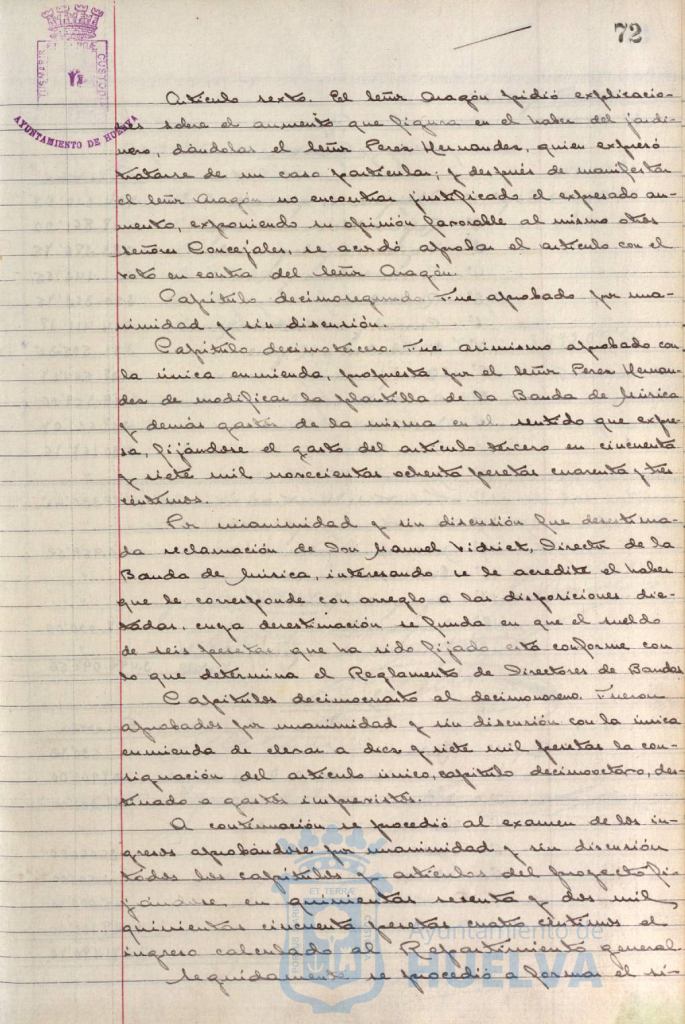 72
CUSTODIA
AYUNTAMIENTO DE HUELVA
Artículo sexto. El Señor Aragón pidió explicacio-
nes sobre el aumento que figura en el haber del jardi-
nero, dándolas el Señor Perez Hernandez, quien expresó
tratarse de un caso particular; y después de manifestar
el Señor Aragón no encontrar justificado el expresado au-
mento, exponiendo su opinión favorable al mismo otros
Señores Concejales, se acordó aprobar el artículo con el
voto en contra del Señor Aragón.
Capítulo decimosegundo. Fue aprobado por una-
nimidad y sin discusión.
Capítulo decimotercero. Fue asimismo aprobado con
la única enmienda, propuesta por el Señor Perez Hernan-
dez de modificar la plantilla de la Banda de Música
y demás gastos de la misma en el sentido que expre-
sa, fijándose el gasto del artículo tercero en cincuenta
y siete mil novecientas ochenta pesetas cuarenta y tres
céntimos.
Por unanimidad y sin discusión fue desestima-
da reclamación de Don Manuel Vidriet, Director de la
Banda de Música, interesando se le acredite el haber
que le corresponde con arreglo a las disposiciones dic-
tadas, cuya desestimación se funda en que el sueldo
de seis pesetas que ha sido fijado está conforme con
lo que determina el Reglamento de Directores de Bandas
Capítulos decimocuarto al decimonoveno. Fueron
aprobados por unanimidad y sin discusión con la única
enmienda de elevar a diez y siete mil pesetas la con-
signación del artículo único, capítulo decimooctavo, des-
tinado a gastos imprevistos.
A continuación se procedió al examen de los in-
gresos aprobándose por unanimidad y sin discusión
todos los capítulos y artículos del proyecto fi-
jándose en quinientas sesenta y dos mil
quinientas cincuenta pesetas cuatro céntimos el
ingreso calculado al Repartimiento general
Seguidamente se procedió a formar el si-
Ayuntamiento de
HUELVA